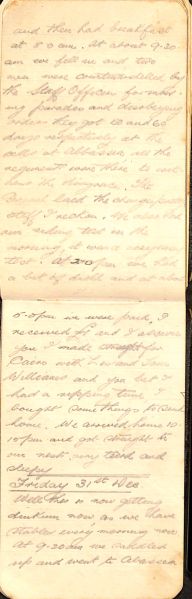 and then had breakfast
at 8 0 am. At about 9.20
am we fell in and two
men were courtmartialled by
the Staff Officer for miss-
ing parades and disobeying
orders they got 10 and 60
days respectively at the
cells at Abbassia, all the
regiment were there to
have the The
Colonel said the
stiff I reckon. We also had
our riding test in the
morning, it was a
test. At 2.0 pm we had
a bit of drill and at about
5.0 pm we were paid, I
received £ and I assure
you I made straight for
Cairo with Les and Tom
Williams and you bet I
had a ripping time, I
bought some things to send
home. We arrived home 10.
10 pm and got straight to
our nest, very tired and
sleepy
Friday 31st Dec.
Well this is now getting
now as we have
stables every morning now
At 9.20 am we saddled
up and went to Abbassia